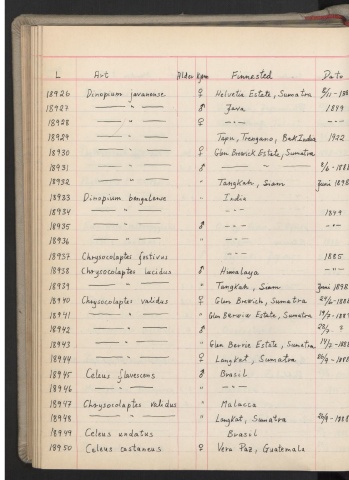 L Art Alder Kjøn Finnested Dato
18926 Dinopium javanense ♀ Helvetia Estate, Sumatra
18927 — " — ♂ Java 1879
18928 — " — ♀ — " —
18929 — " — Tapu, Trengano, 1922
18930 — " — ♀ Glen Brewick Estate, Sumatra
18931 — " — ♂ — " —
18932 — " — " Tangkah, Siam Juni 1898
18933 Dinopium bengalense " India
18934 — " — — " — 1879
18935 — " — ♂ — " — — " —
18936 — " — " — " —
18937 Chrysocolaptes festivus — " — 1885
18938 Chrysocolaptes lucidus ♂ Himalaya — " —
18939 — " — " Tangkah, Siam Juni 1898
18940 Chrysocolaptes validus ♀ Glen Brewich, Sumatra
18941 — " — " Glen Berwix Estate, Sumatra
18942 — " — ♂ ?
18943 — " — " Glen Berrie Estate, Sumatra
18944 — " — ♀ Langkat, Sumatra
18945 Celeus flavescens ♂ Brasil
18946 — " — " — " —
18947 Chrysocolaptes validus " Malacca
18948 — " — " Langkat, Sumatra
18949 Celeus undatus Brasil
18950 Celeus castaneus ♀ Vera Paz, Guatemala